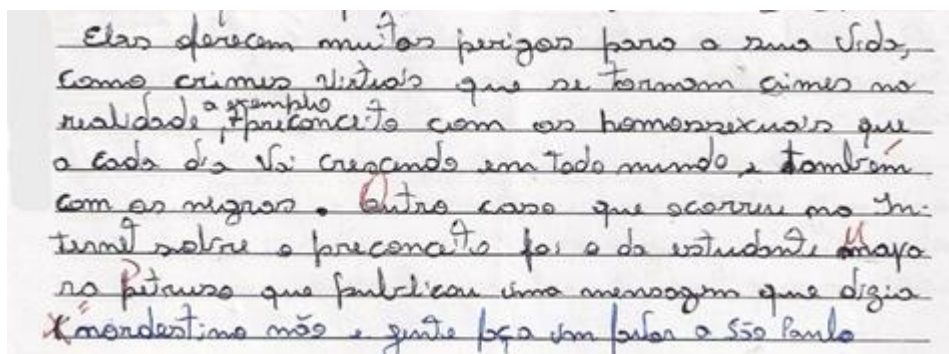 Elas oferecem muitos perigos para a sua vida,
como crimes virtuais que se tornam cimes na
realidade, a exemplo preconceito com os homossexuais que
a cada dia vai crescendo em todo mundo e também
com os negros. Outro caso que ocorreu na In-
ternet sobre o preconceito foi o da estudante Maya
ra Petruso que publicou uma mensagem que dizia
"nordestino não e gente faça um favor a São Paulo